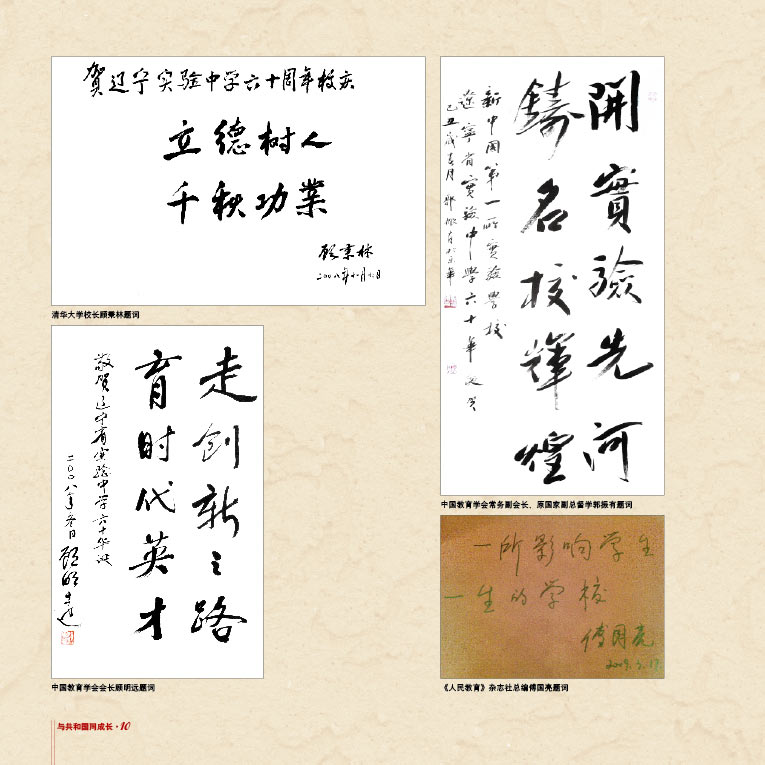 贺辽宁实验中学六十周年校庆
立德树人
千秋功業
顾秉林
清华大学校长顾秉林题词
開實驗先河
鑄名校輝煌
新中國第一所實驗學校
遼寧省實驗中學六十華誕
己丑
中国教育学会常务副会长、原国家副总督学郭振有题词
走创新之路
育时代英才
敬贺辽宁省实验中学六十华诞
二〇〇八年冬日 顾明远
中国教育学会会长顾明远题词
一所影响学生
一生的学校
傅国亮
《人民教育》杂志社总编傅国亮题词
与共和国同成长·10